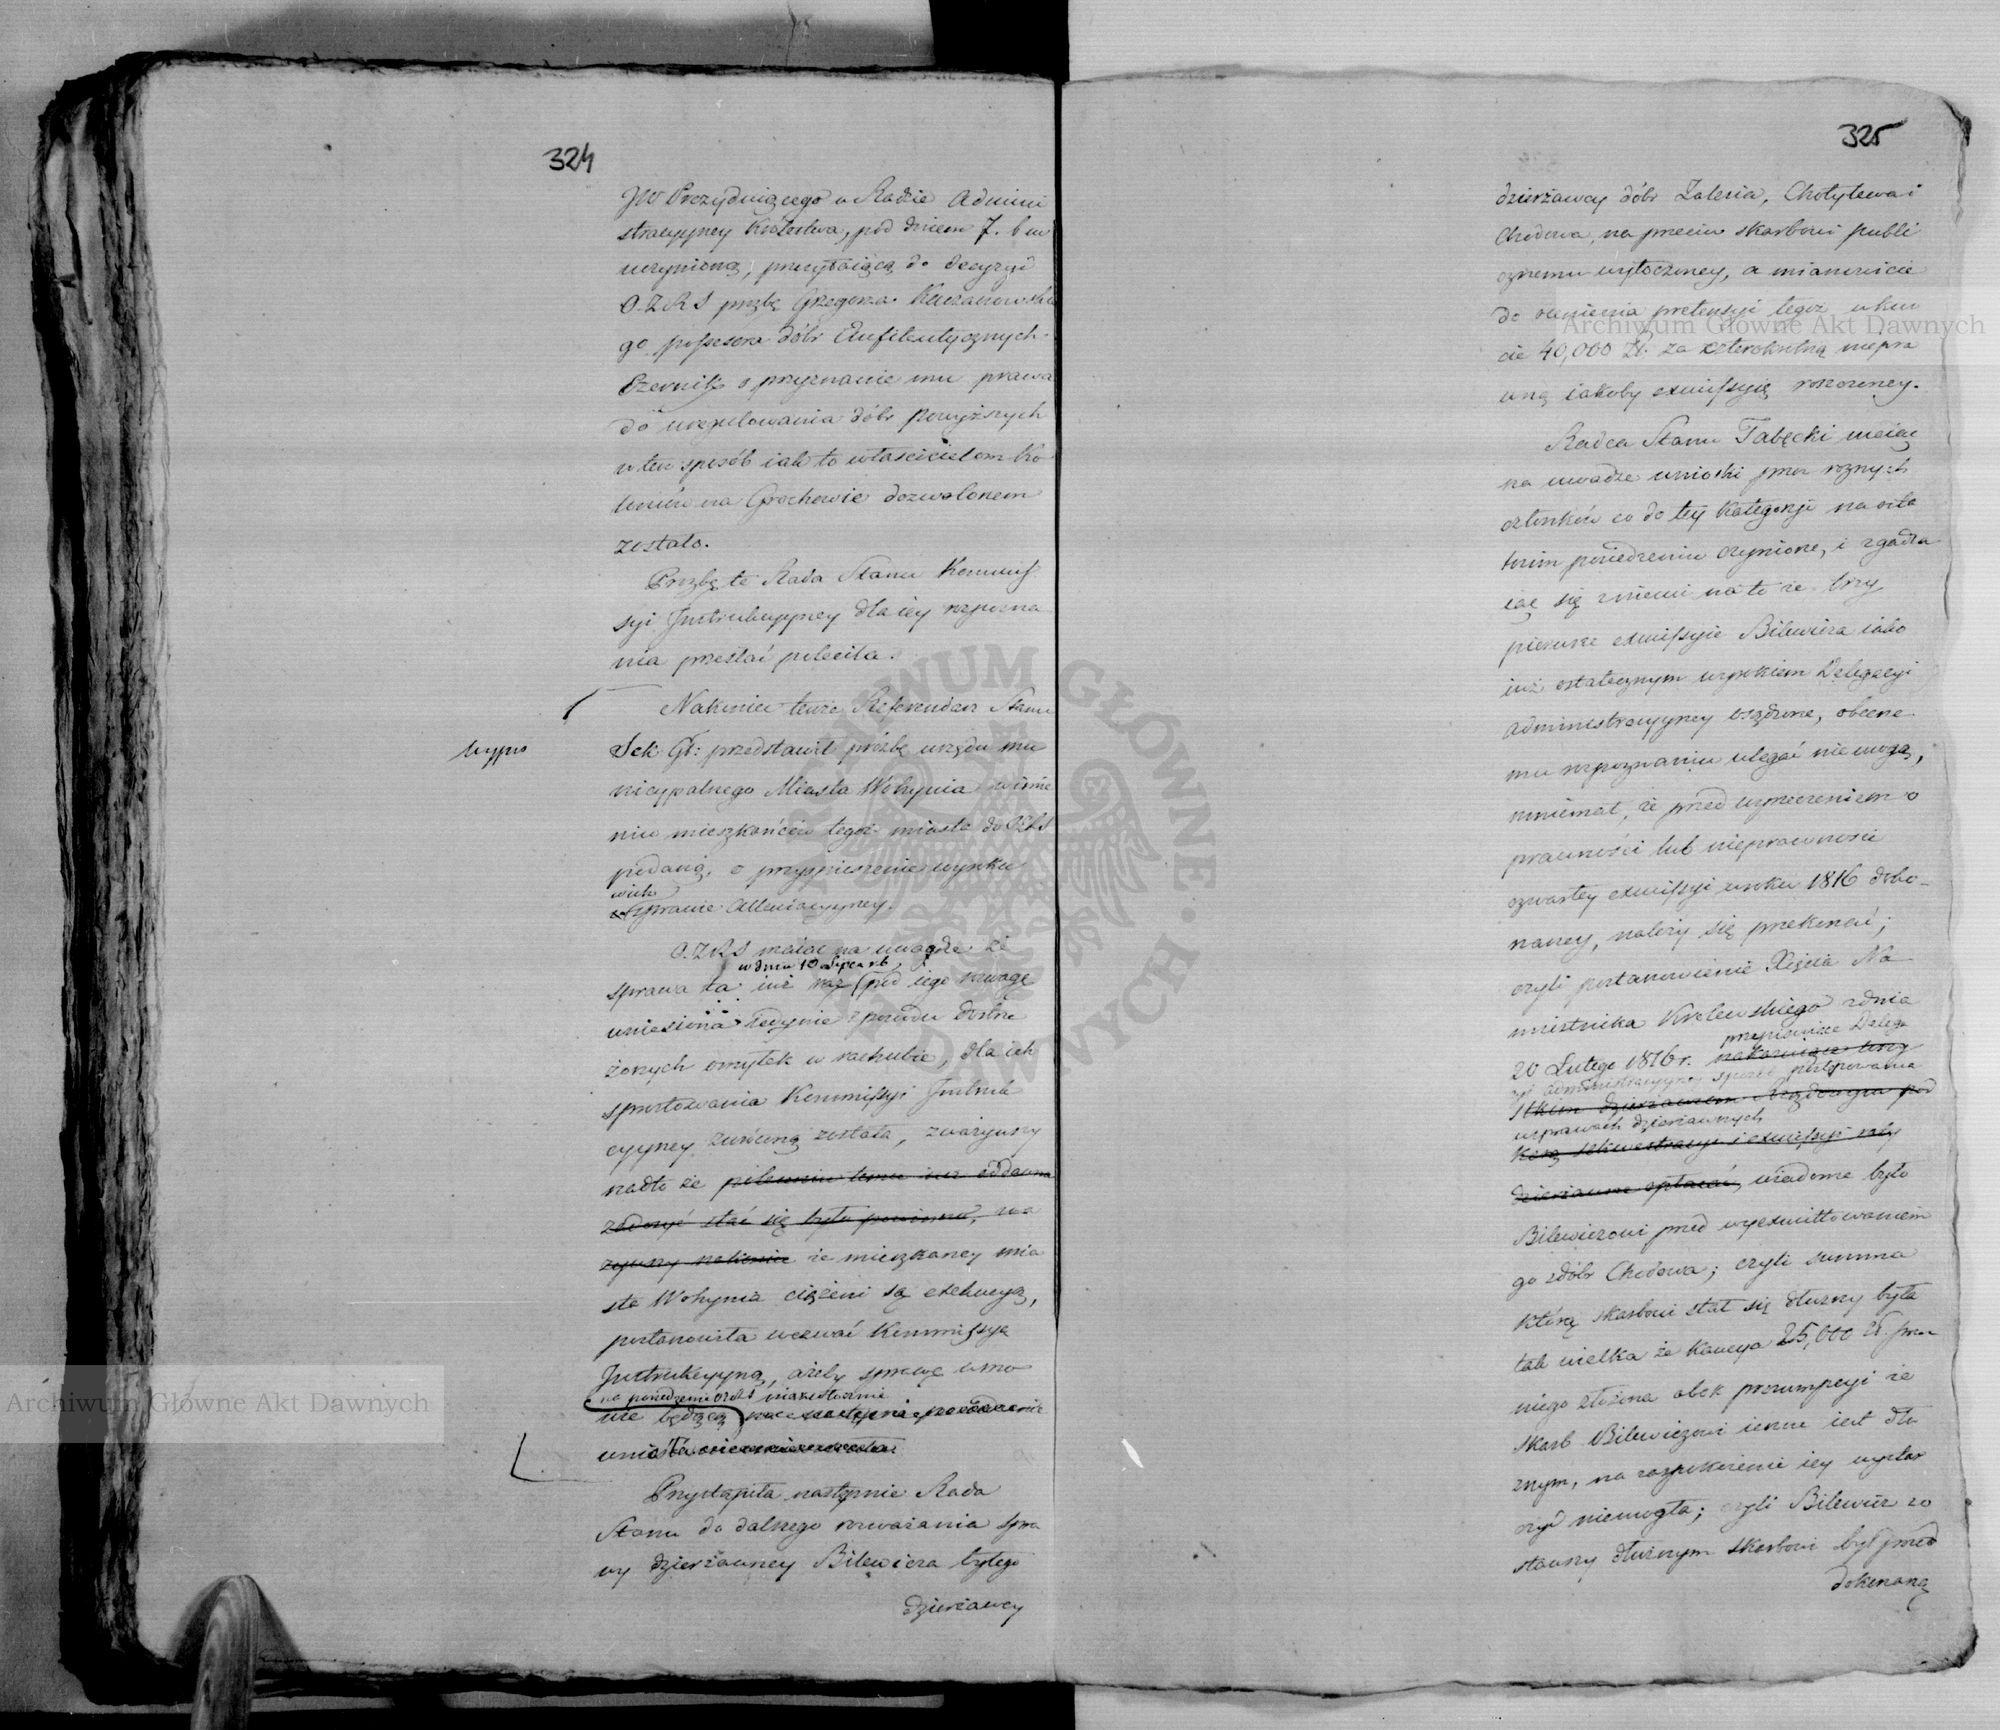 324
JW Prezyduiącego w Radzie Admini
stracyyney Królestwa, pod dniem 7. b m
uczynioną, przesyłaiącą do decyzyi
O.Z.R.S prozbę Grzegorza Kuczanowskie
go possesora dóbr Emfiteutycznych
o przyznanie mu prawa
do uregulowania dóbr powyższych
w ten sposób iak to właścicielom Ko
loniów na Grochowie dozwolonem
zostało.
Prozbę tę Rada Stanu Kommis
syi Instrukcyyney dla iey rozpozna
nia przesłać poleciła.
Nakoniec tenże Referendarz Stanu
wypis
Sek: Gł: przedstawił prózbę urzędu mu
nicypalnego Miasta Wohynia w imie
niu mieszkańców tegoż miasta do OZRS
podaną, o przyspieszenie wyroku
wich
sprawie Allewiacyyney.
O.ZRS maiąc na uwadze że
w dniu 10 Lipca rb
sprawa ta iuż raz pod iego uwagę
wniesiona iedynie z powodu dostrze
żonych omyłek w rachubie, dla ich
sprostowania Kommissyi Instruk
cyyney zwróconą została, zważywszy
nadto że poleceniu temu iuż oddawna
zadosyć stać się było powinno, zwa
żywszy nakoniec że mieszkańcy mia
sta Wohynia ciążeni są exekucyą,
postanowiła wezwać Kommissyę
Instrukcyyną, ażeby sprawę wmo
na posiedzenie OZRS niezwłocznie
wie będącą na następne posiedzenie
wniosła
Przystąpiła następnie Rada
Stanu do dalszego rozważania spra
wy dzierżawney Bilewicza byłego
dzierżawcy
325
dzierżawcy dóbr Zalesia, Chotyłowa i
Chodowa, na przeciw skarbowi publi
cznemu wytoczoney, a mianowicie
do ocenienia pretensyi tegoż w kwo
cie 40,000 Zł. za czterokrotną niepra
wną iakoby exmissyią roszczoney.
Radca Stanu Tabęcki maiąc
na uwadze wnioski przez roznych
członków co do tey kategoryi na osta
tnim posiedzeniu czynione, i zgadza
iąc się z niemi na to że trzy
pierwsze exmissyie Bilewicza iako
iuż ostatecznym wyrokiem Delegacyi
Administracyyney osądzone, obecne
mu rozpoznaniu ulegać nie mogą,
mniemał, że przed wyrzeczeniem o
prawności lub nieprawności
czwartey exmissyi w roku 1816 doko-
naney, należy się przekonać;
czyli postanowienie Xięcia Na
miestnika Krolewskiego z dnia
przepisuiące Delega
20 Lutego 1816 r. nakazuiące wszy
cyi administracyyney sposób postępowania
stkim dzierżawcom Rządowym pod
w sprawach dzierżawnych
karą sekwestracyi i exmissyi raty
dzierżawne opłacać, wiadome było
Bilewiczowi przed wyexmittowaniem
go z dóbr Chodowa; czyli summa
którą skarbowi stał się dłużny była
tak wielka że kaucya 25,000 zł. przez
niego złożona obok prezumpcyi że
skarb Bilewiczowi ieszcze iest dłu
żnym, na zaspokoienie iey wystar
czyć niemogła; czyli Bilewicz zo
stawszy dłużnym skarbowi był przed
dokonaną
Archiwum Główne Akt Dawnych
Archiwum Główne Akt Dawnych
ARCHIWUM GŁÓWNE AKT DAWNYCH